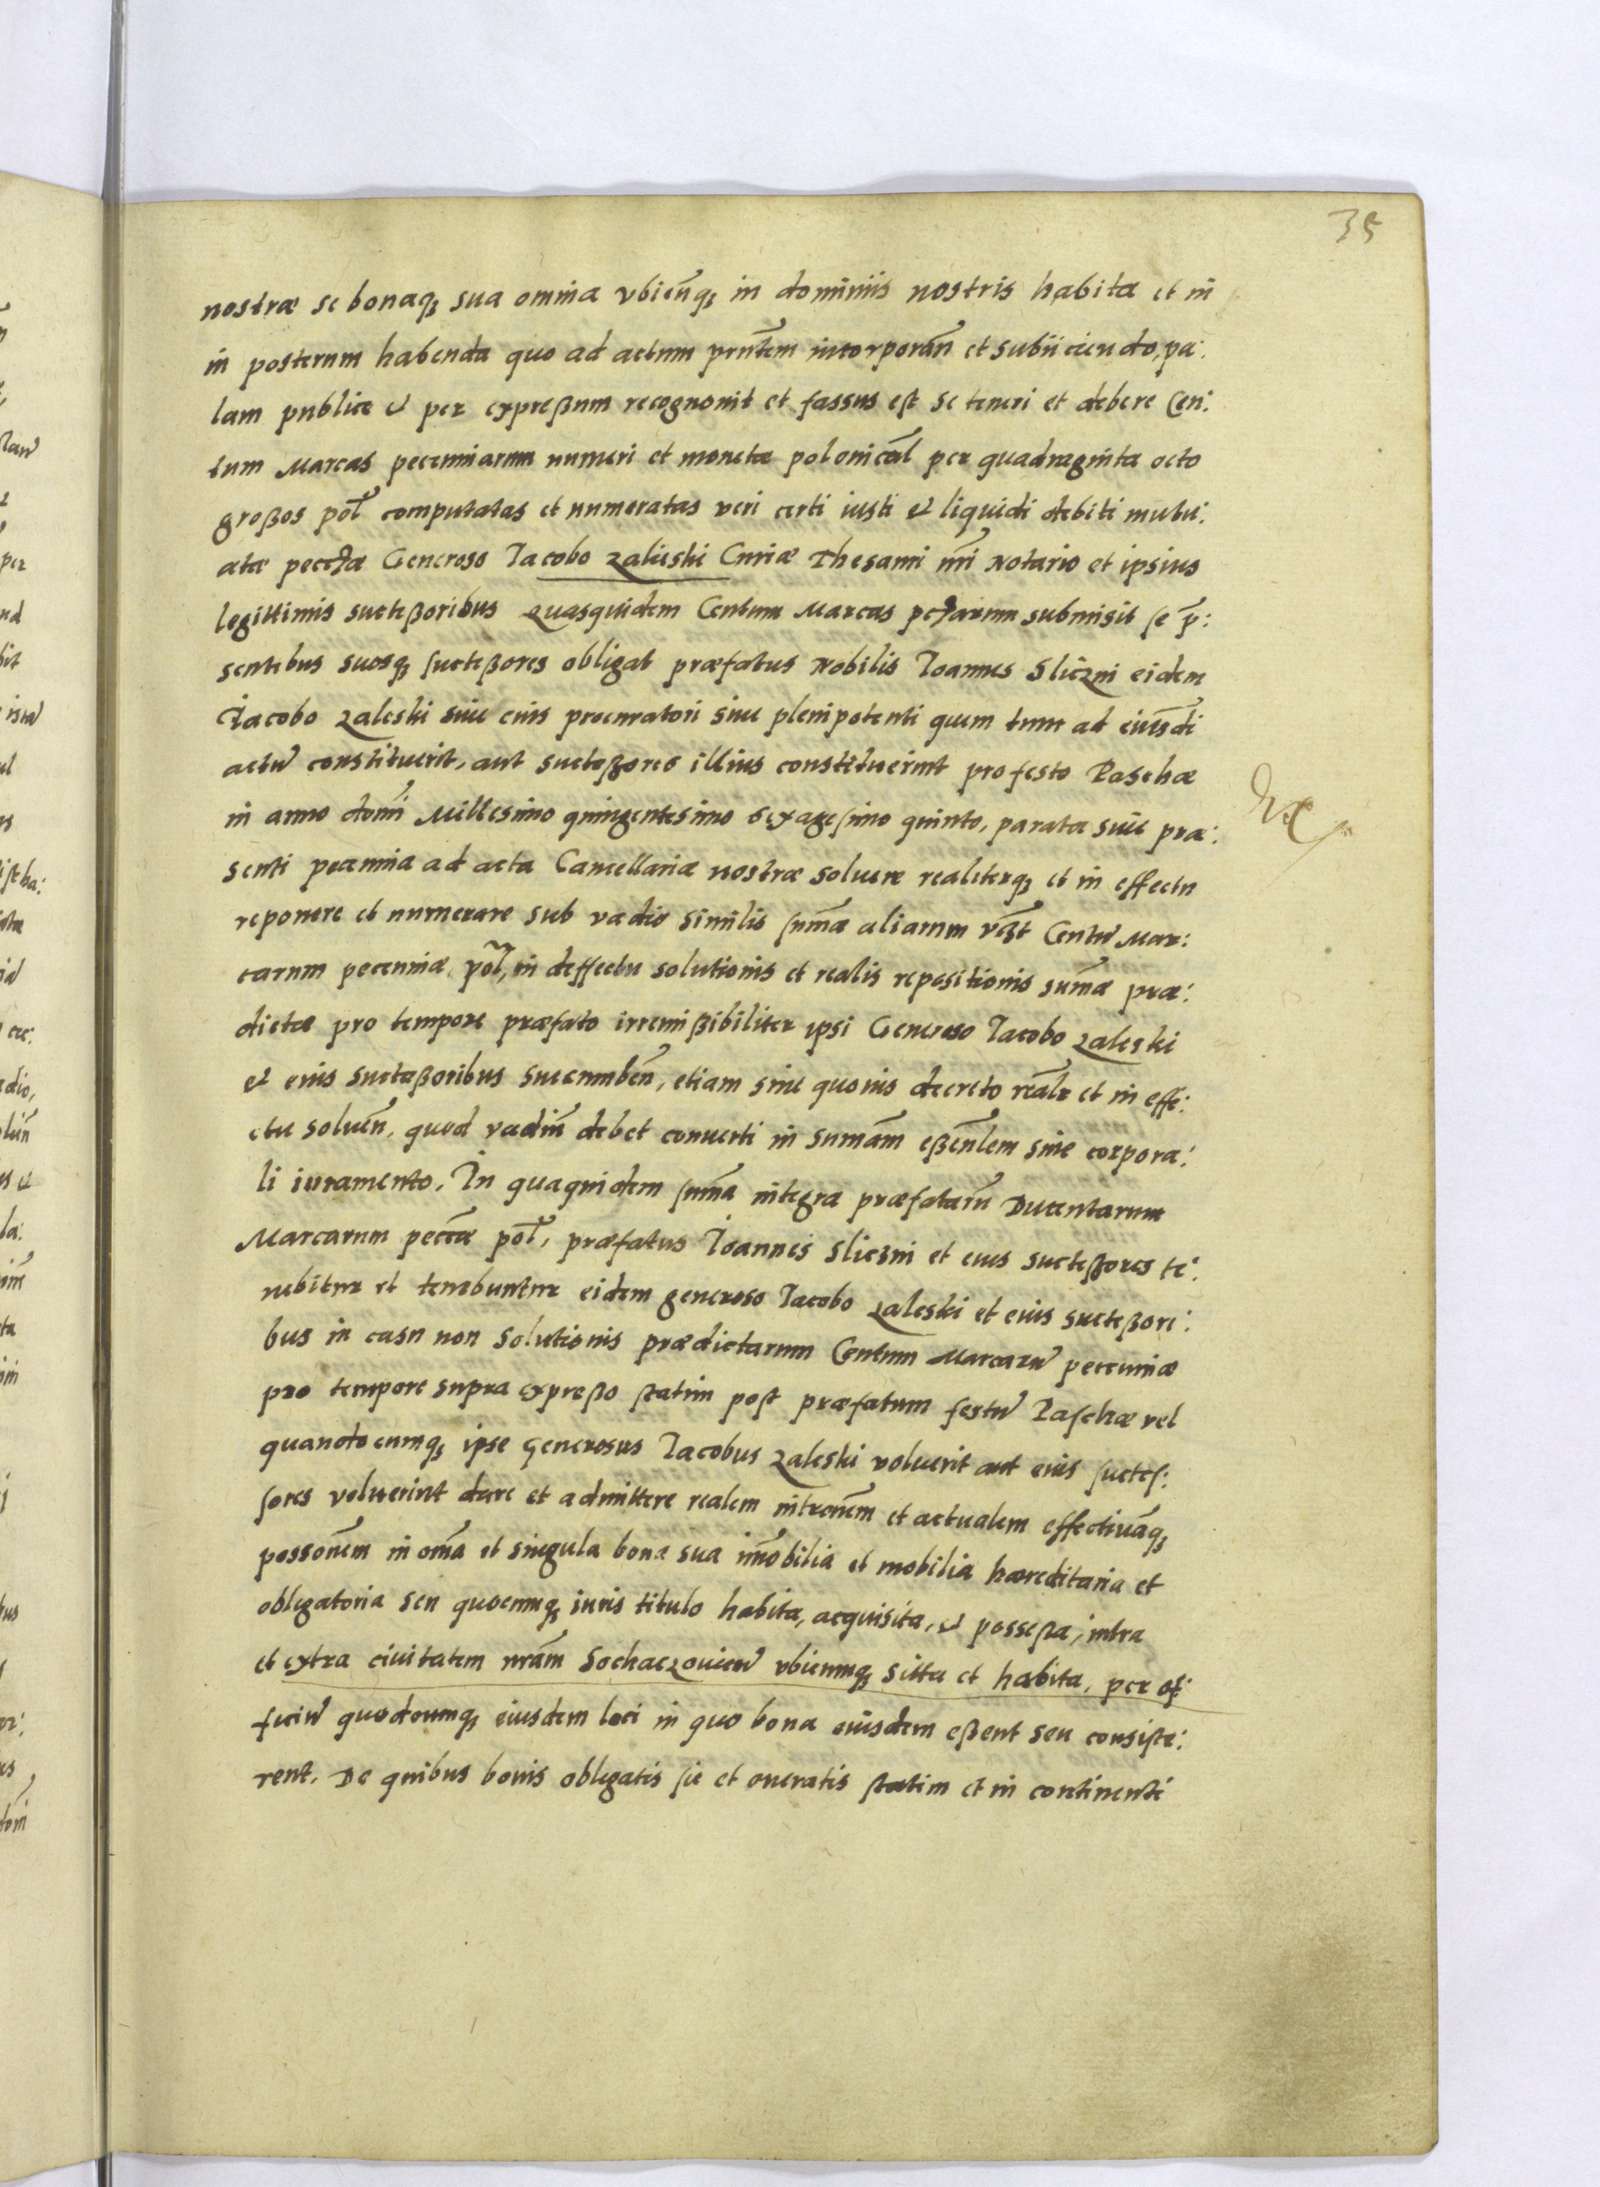 35
nostræ se bonaq; sua omnia vbicũq; in dominiis nostris habita et in
in posterum habenda quo ad actum pñtem incorporãn et subiiciendo, pa:
lam publice & per expreßum recognouit et fassus est se teneri et debere Cen:
tum Marcas pecuniarum numeri et monetæ polonicãl per quadraginta octo
großos pol̃ computatas et numeratas veri certi iusti et liquidi debiti mutu:
atæ Generoso Jacobo Zalieski Curiæ Thesauri nr̃i Notario et ipsius
legittimis succeßoribus Quasquidem Centum Marcas submisit se p̃:
sentibus suosq; succeßores obligat præfatus Nobilis Joannes Sliczni eidem
Jacobo Zaleski siue eius procuratori siue plenipotenti quem tunc ad eiusdi
actũ constituerit, aut succeßores illius constituerint pro festo Paschæ
in anno domĩ Millesimo quingentesimo sexagesimo quinto, parata siue præ:
senti pecunia ad acta Cancellariæ nostræ soluere realiterq; et in effectu
reponere et numerare sub vadio similis sum̃æ aliarum vz̃t Centũ Mar:
carum pecuniæ pol̃, in deffectu solutionis et realis repositionis sum̃æ præ:
dictæ pro tempore præfato irremißibiliter ipsi Generoso Jacobo Zaleski
et eius succeßoribus succumbeñ, etiam siue quouis decreto reãlr et in effe:
ctu solueñ, quod vadiũ debet conuerti in sumãm eßeñlem sine corpora:
li iuramento. In quaquidem sum̃a integra præfatarũ Ducentarum
Marcarum pec̃æ pol̃, præfatus Joannes Sliczni et eius succeßores te:
nebitur et tenebuntur eidem generoso Jacobo Zaleski et eius succeßori:
bus in casu non solutionis prædictarum Centum Marcarũ pecuniæ
pro tempore supra expreßo statim post præfatum festũ Paschæ vel
quandocumq; ipse Generosus Jacobus Zaleski voluerit aut eius succes:
sores voluerint dare et admittere realem intronẽm et actualem effectiuãq;
possonẽm in om̃a et singula bona sua im̃obilia et mobilia hæreditaria et
obligatoria seu quocumq; iuris titulo habita, acquisita, & possessa, intra
et extra ciuitatem nrãm Sochaczouieñ vbicumq; sitta et habita, per of:
ficiũ quodcumq; eiusdem loci in quo bona eiusdem eßent seu consiste:
rent. De quibus bonis obligatis sic et oneratis statim et in continenti